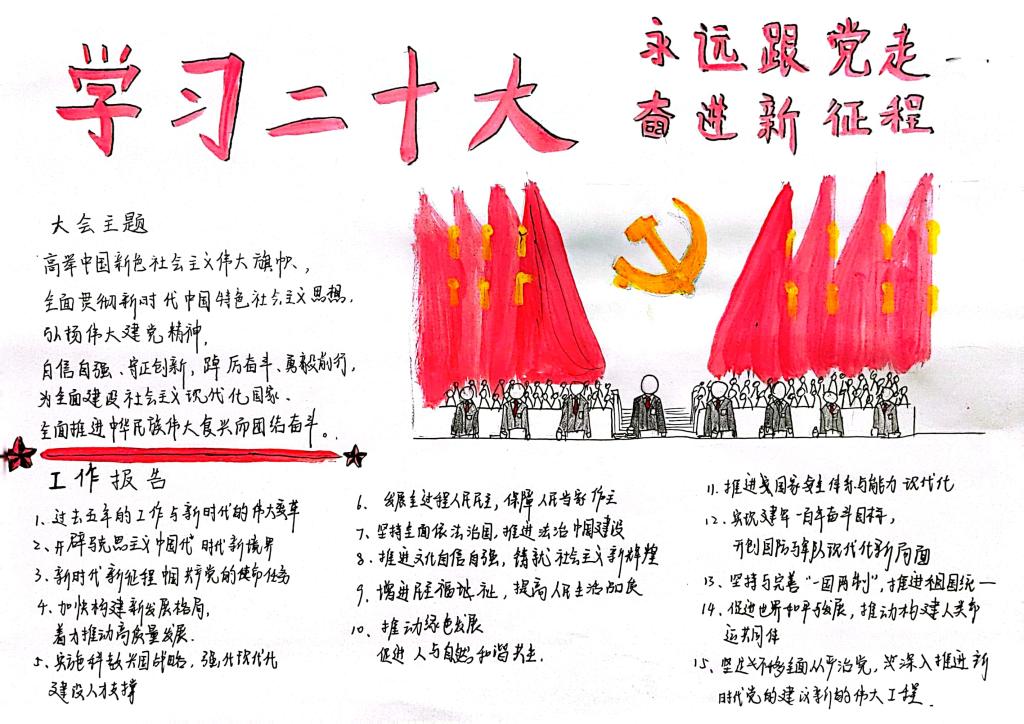 学习二十大
永远跟党走
奋进新征程
大会主题
高举中国新色社会主义伟大旗帜、
全面贯彻新时代中国特色社会主义思想,
弘扬伟大建党精神,
自信自强、守正创新,踔厉奋斗、勇毅前行,
为全面建设社会主义现代化国家、
全面推进中华民族伟大复兴而团结奋斗。
工作报告
1、过去五年的工作与新时代的伟大变革
2、开辟马克思主义中国代时代新境界
3、新时代新征程中国共产党的使命任务
4、加快构建新发展格局,
着力推动高质量发展.
5、实施科教兴国战略,强化现代化
建设人才支撑
6、发展全过程人民民主,保障人民当家作主
7、坚持全面依法治国,推进法治中国建设
8、推进文化自信自强,铸就社会主义新辉煌
9、增进民生福祉,提高人民生活品质
10、推动绿色发展
促进人与自然和谐共生.
11、推进国家安全体系与能力现代化
12、实现建军一百年奋斗目标,
开创国防与军队现代化新局面
13、坚持与完善“一国两制”,推进祖国统一
14、促进世界和平与发展,推动构建人类命
运共同体
15、坚定不移全面从严治党,深入推进新
时代党的建设新的伟大工程.